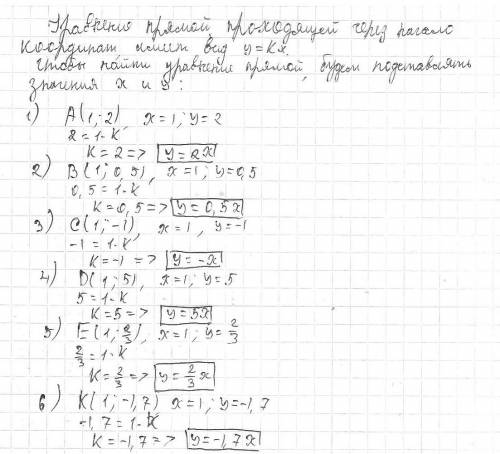 Уравнение прямой, проходящей через начало
координат имеет вид y=kx.
Чтобы найти уравнение прямой, будем подставлять
значения x и y:
1) A(1;-2) x=1; y=2
2=1·k
k=2 => y=2x
2) B(1; 0,5), x=1; y=0,5
0,5=1·k
k=0,5 => y=0,5x
3) C(1;-1), x=1, y=-1
-1=1·k
k=-1 => y=-x
4) D(1; 5), x=1; y=5
5=1·k
k=5 => y=5x
5) E(1; 2/3), x=1; y=2/3
2/3=1·k
k=2/3 => y=2/3x
6) K(1;-1,7) x=1; y=-1,7
-1,7=1·k
k=-1,7 => y=-1,7x